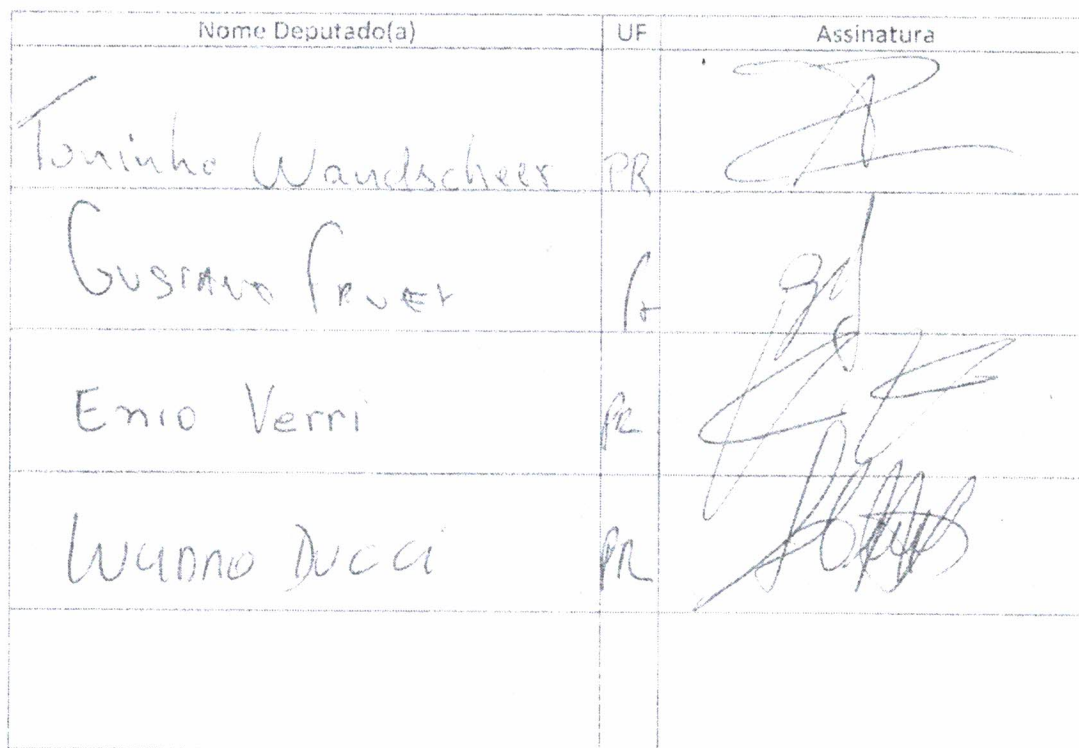 Nome Deputado(a) UF Assinatura
Toninho Wandscheer PR
Gustavo Fruet Pr
Enio Verri PR
Luciano Ducci PR